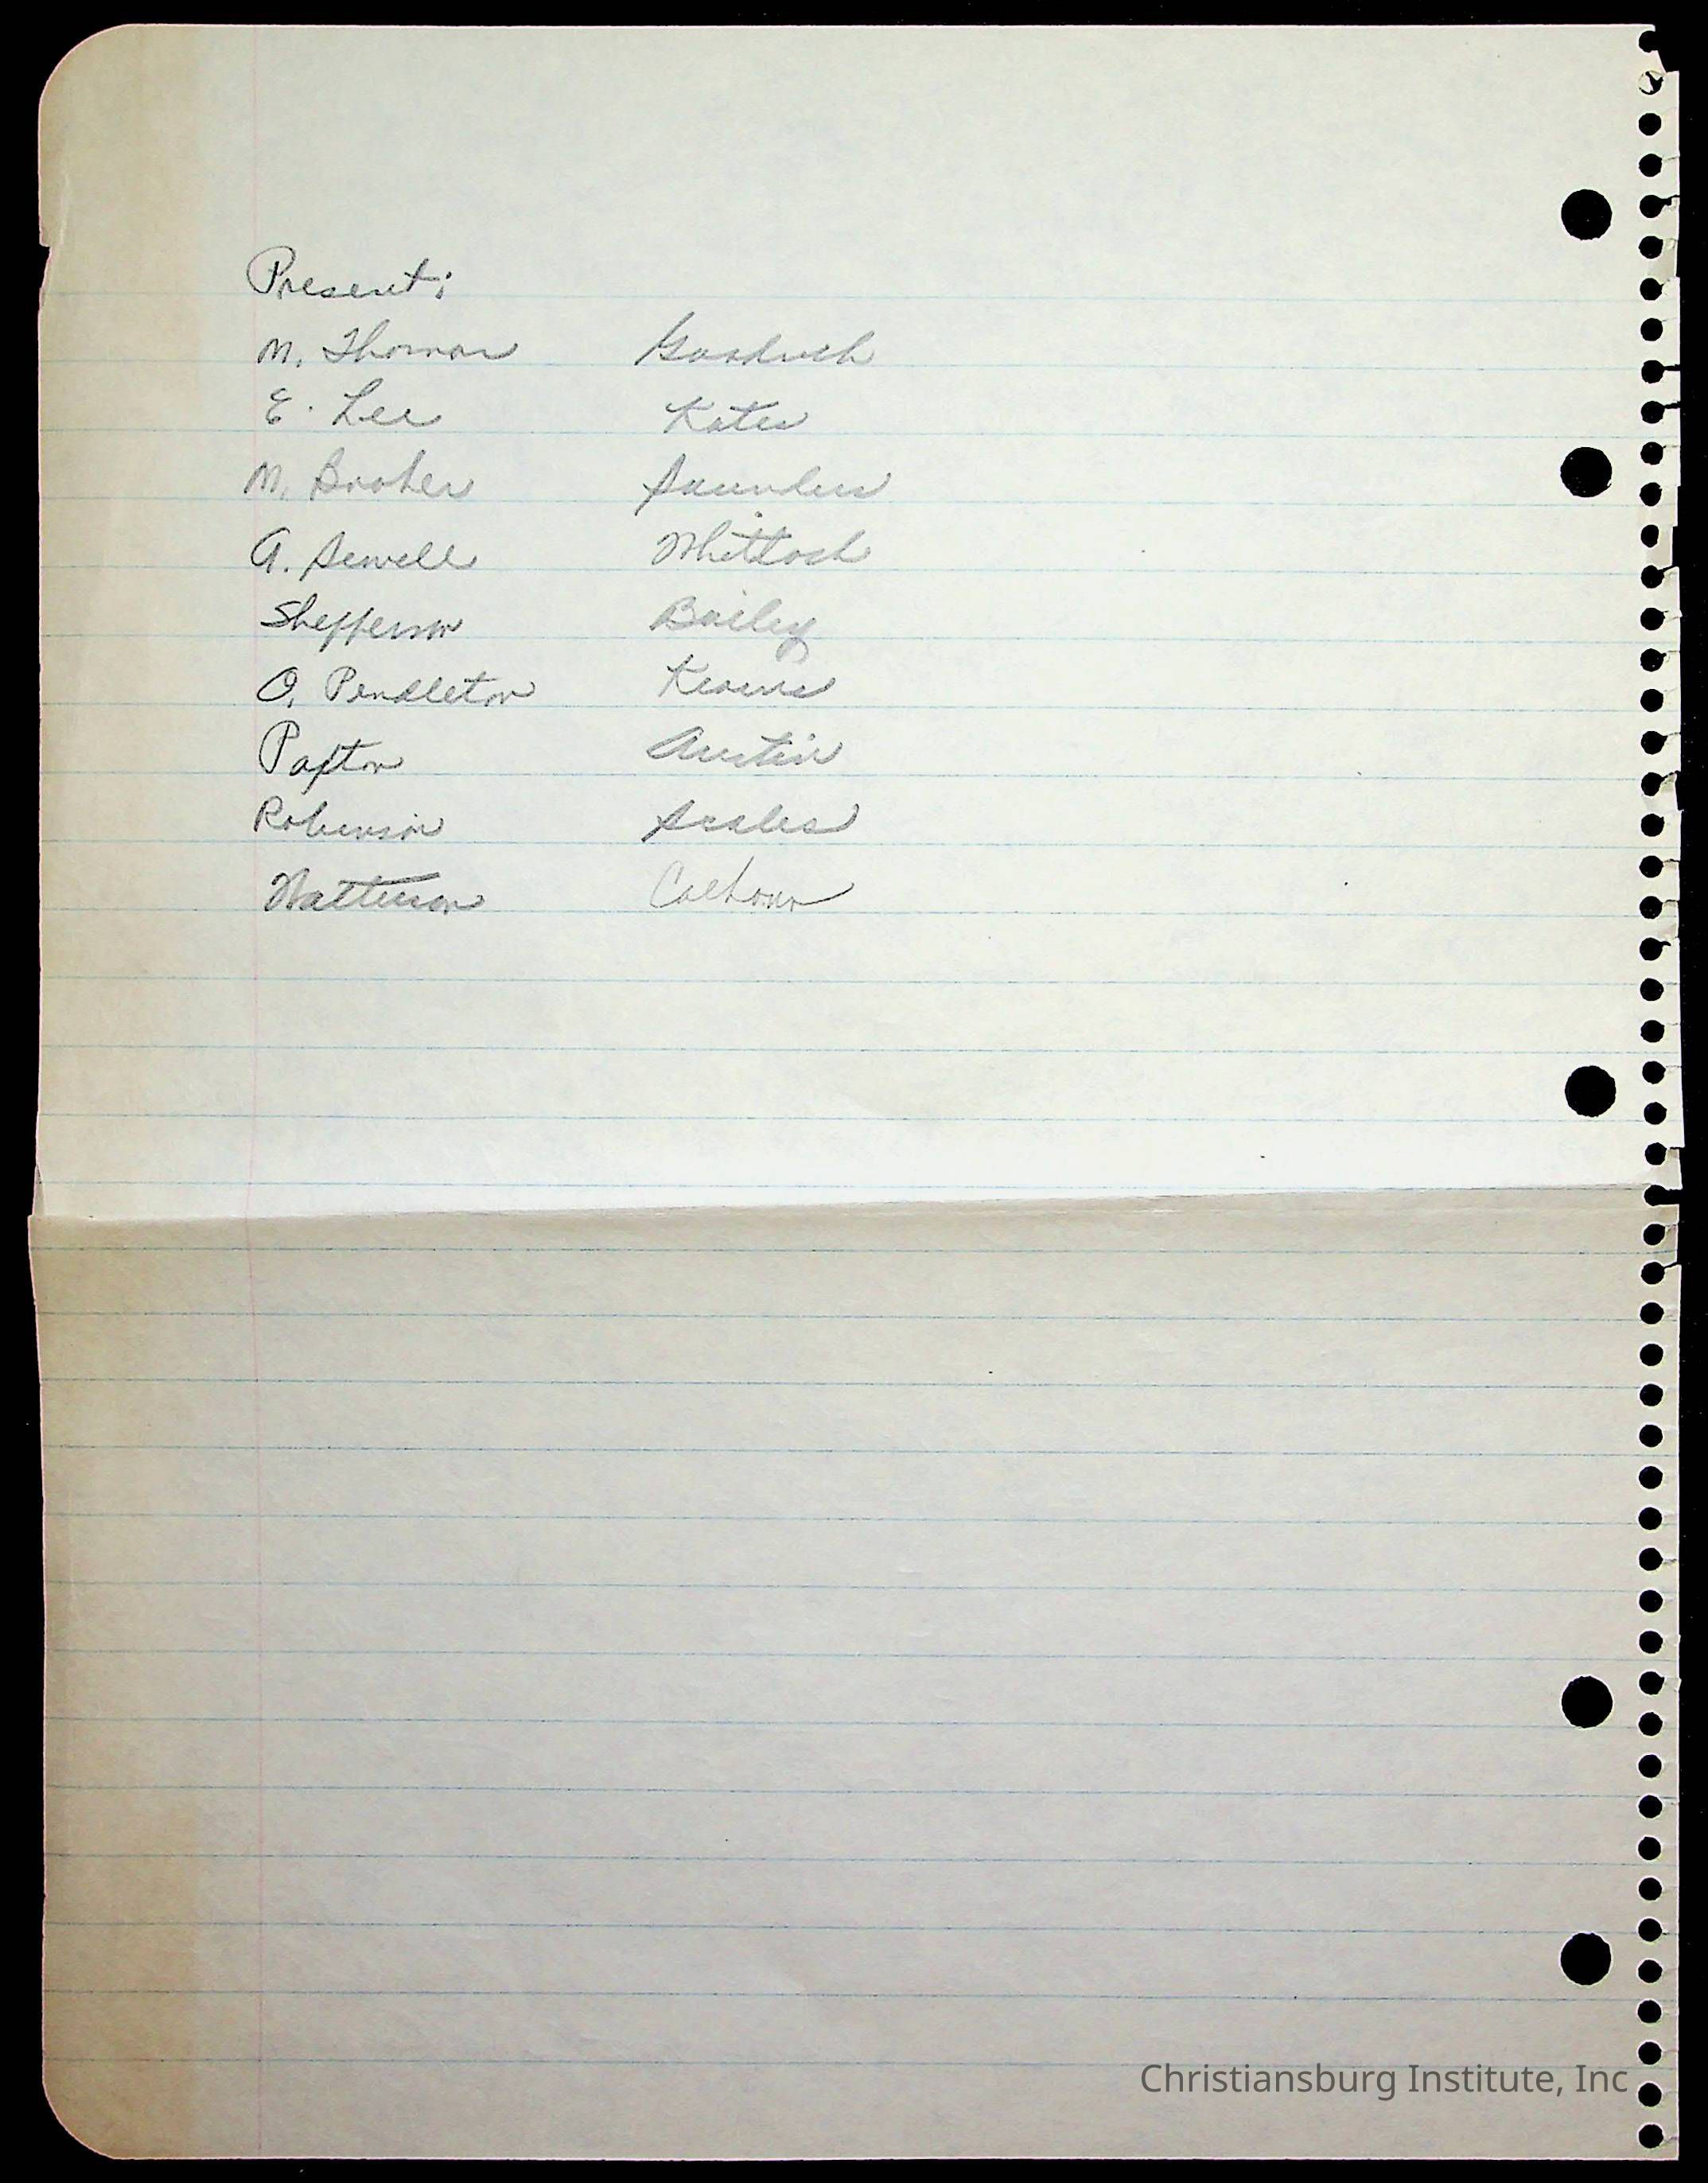 Present:
M. Thomas Goodrich
E. Lee Kates
M. Booher Saunders
A. Sewell Whitlock
Shepperson Bailey
O. Pendleton
Paxton Austin
Robinson Scales
Calhoun
Christiansburg Institute, Inc